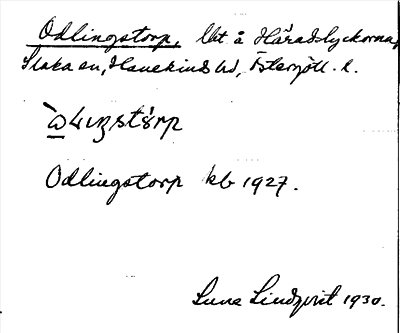 Odlingstorp, lht å Häradslyckorna,
Slaka sn, Hanekinds hd, Östergötl. l.
Odlingstorp kb 1927.
Sune Lindqvist 1930.